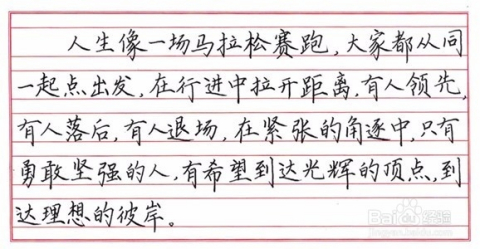 人生像一场马拉松赛跑,大家都从同
一起点出发,在行进中拉开距离,有人领先,
有人落后,有人退场,在紧张的角逐中,只有
勇敢坚强的人,有希望到达光辉的顶点,到
达理想的彼岸。
Baidu经验
jingyan.baidu.com